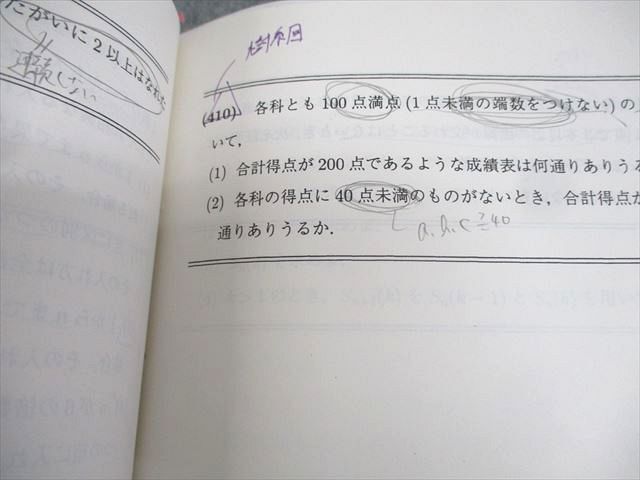 たがいに2以上はなれた
連続しない
樹系図
(410) 各科とも100点満点(1点未満の端数をつけない)の
いて,
(1) 合計得点が200点であるような成績表は何通りありうる
(2) 各科の得点に40点未満のものがないとき,合計得点が
通りありうるか.
a, b, c ≧ 40